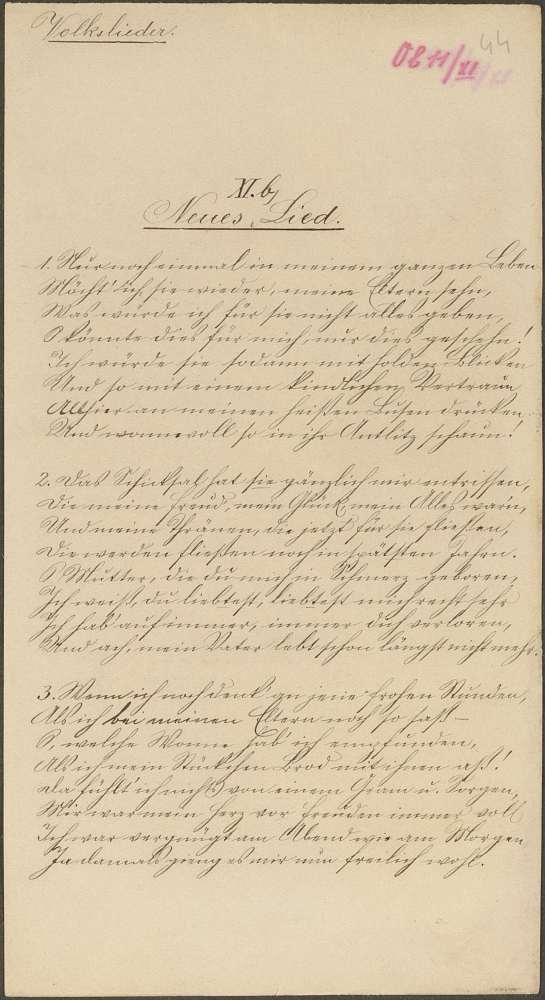 Volkslieder.
44
XI. b,
Neues Lied.
1. Nur noch einmal in meinem ganzen Leben
Möcht' ich sie wieder, meine Eltern sehn,
Was würde ich für sie nicht alles geben,
O könnte dies für mich, nur dies geschehn!
Ich würde sie sodann mit holden Blicken
Und so mit einem kindlichen Vertraun
Allhier an meinen heißen Busen drücken
Und wonnevoll so in ihr Antlitz schaun!
2. Das Schicksal hat sie gänzlich mir entrissen,
Die meine Freud, mein Glück, mein Alles war'n,
Und meine Thränen, die jetzt für sie fließen,
Die werden fließen noch in spätsten Jahrn.
O Mutter, die du mich in Schmerz geboren,
Ich weiß, du liebtest, liebtest mich recht sehr
Ich hab' auf immer, immer dich verloren,
Und ach, mein Vater lebt schon längst nicht mehr.
3. Wenn ich noch denk' an jene frohen Stunden,
Als ich bei meinen Eltern noch so saß –
O, welche Wonne hab' ich empfunden,
Als ich mein Stückchen Brod mit ihnen aß!
Da fühlt' ich nichts von einem Gram u. Sorgen,
Mir war mein Herz vor Freuden immer voll
Ich war vergnügt am Abend wie am Morgen
Ja damals gieng es mir nun freilich wohl.